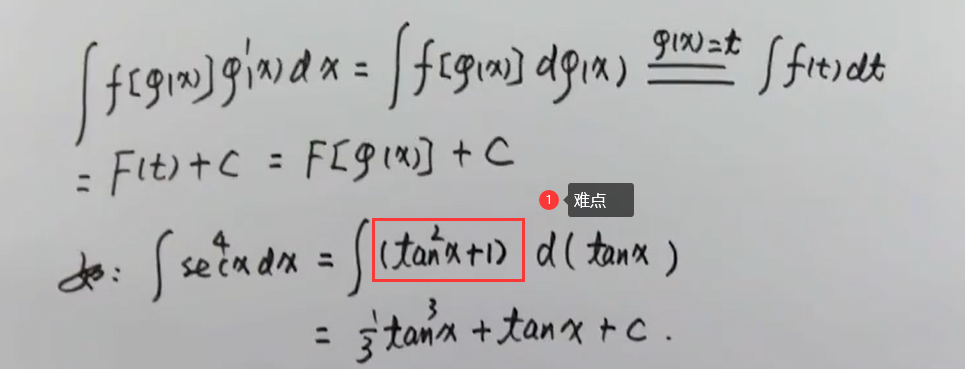 ∫f[φ(x)]φ'(x)dx = ∫f[φ(x)]dφ(x) φ(x)=t ∫f(t)dt
= F(t)+C = F[φ(x)]+C
1 难点
∫sec⁴xdx = ∫(tan²x+1) d(tanx)
= 1/3 tan³x + tanx + C.